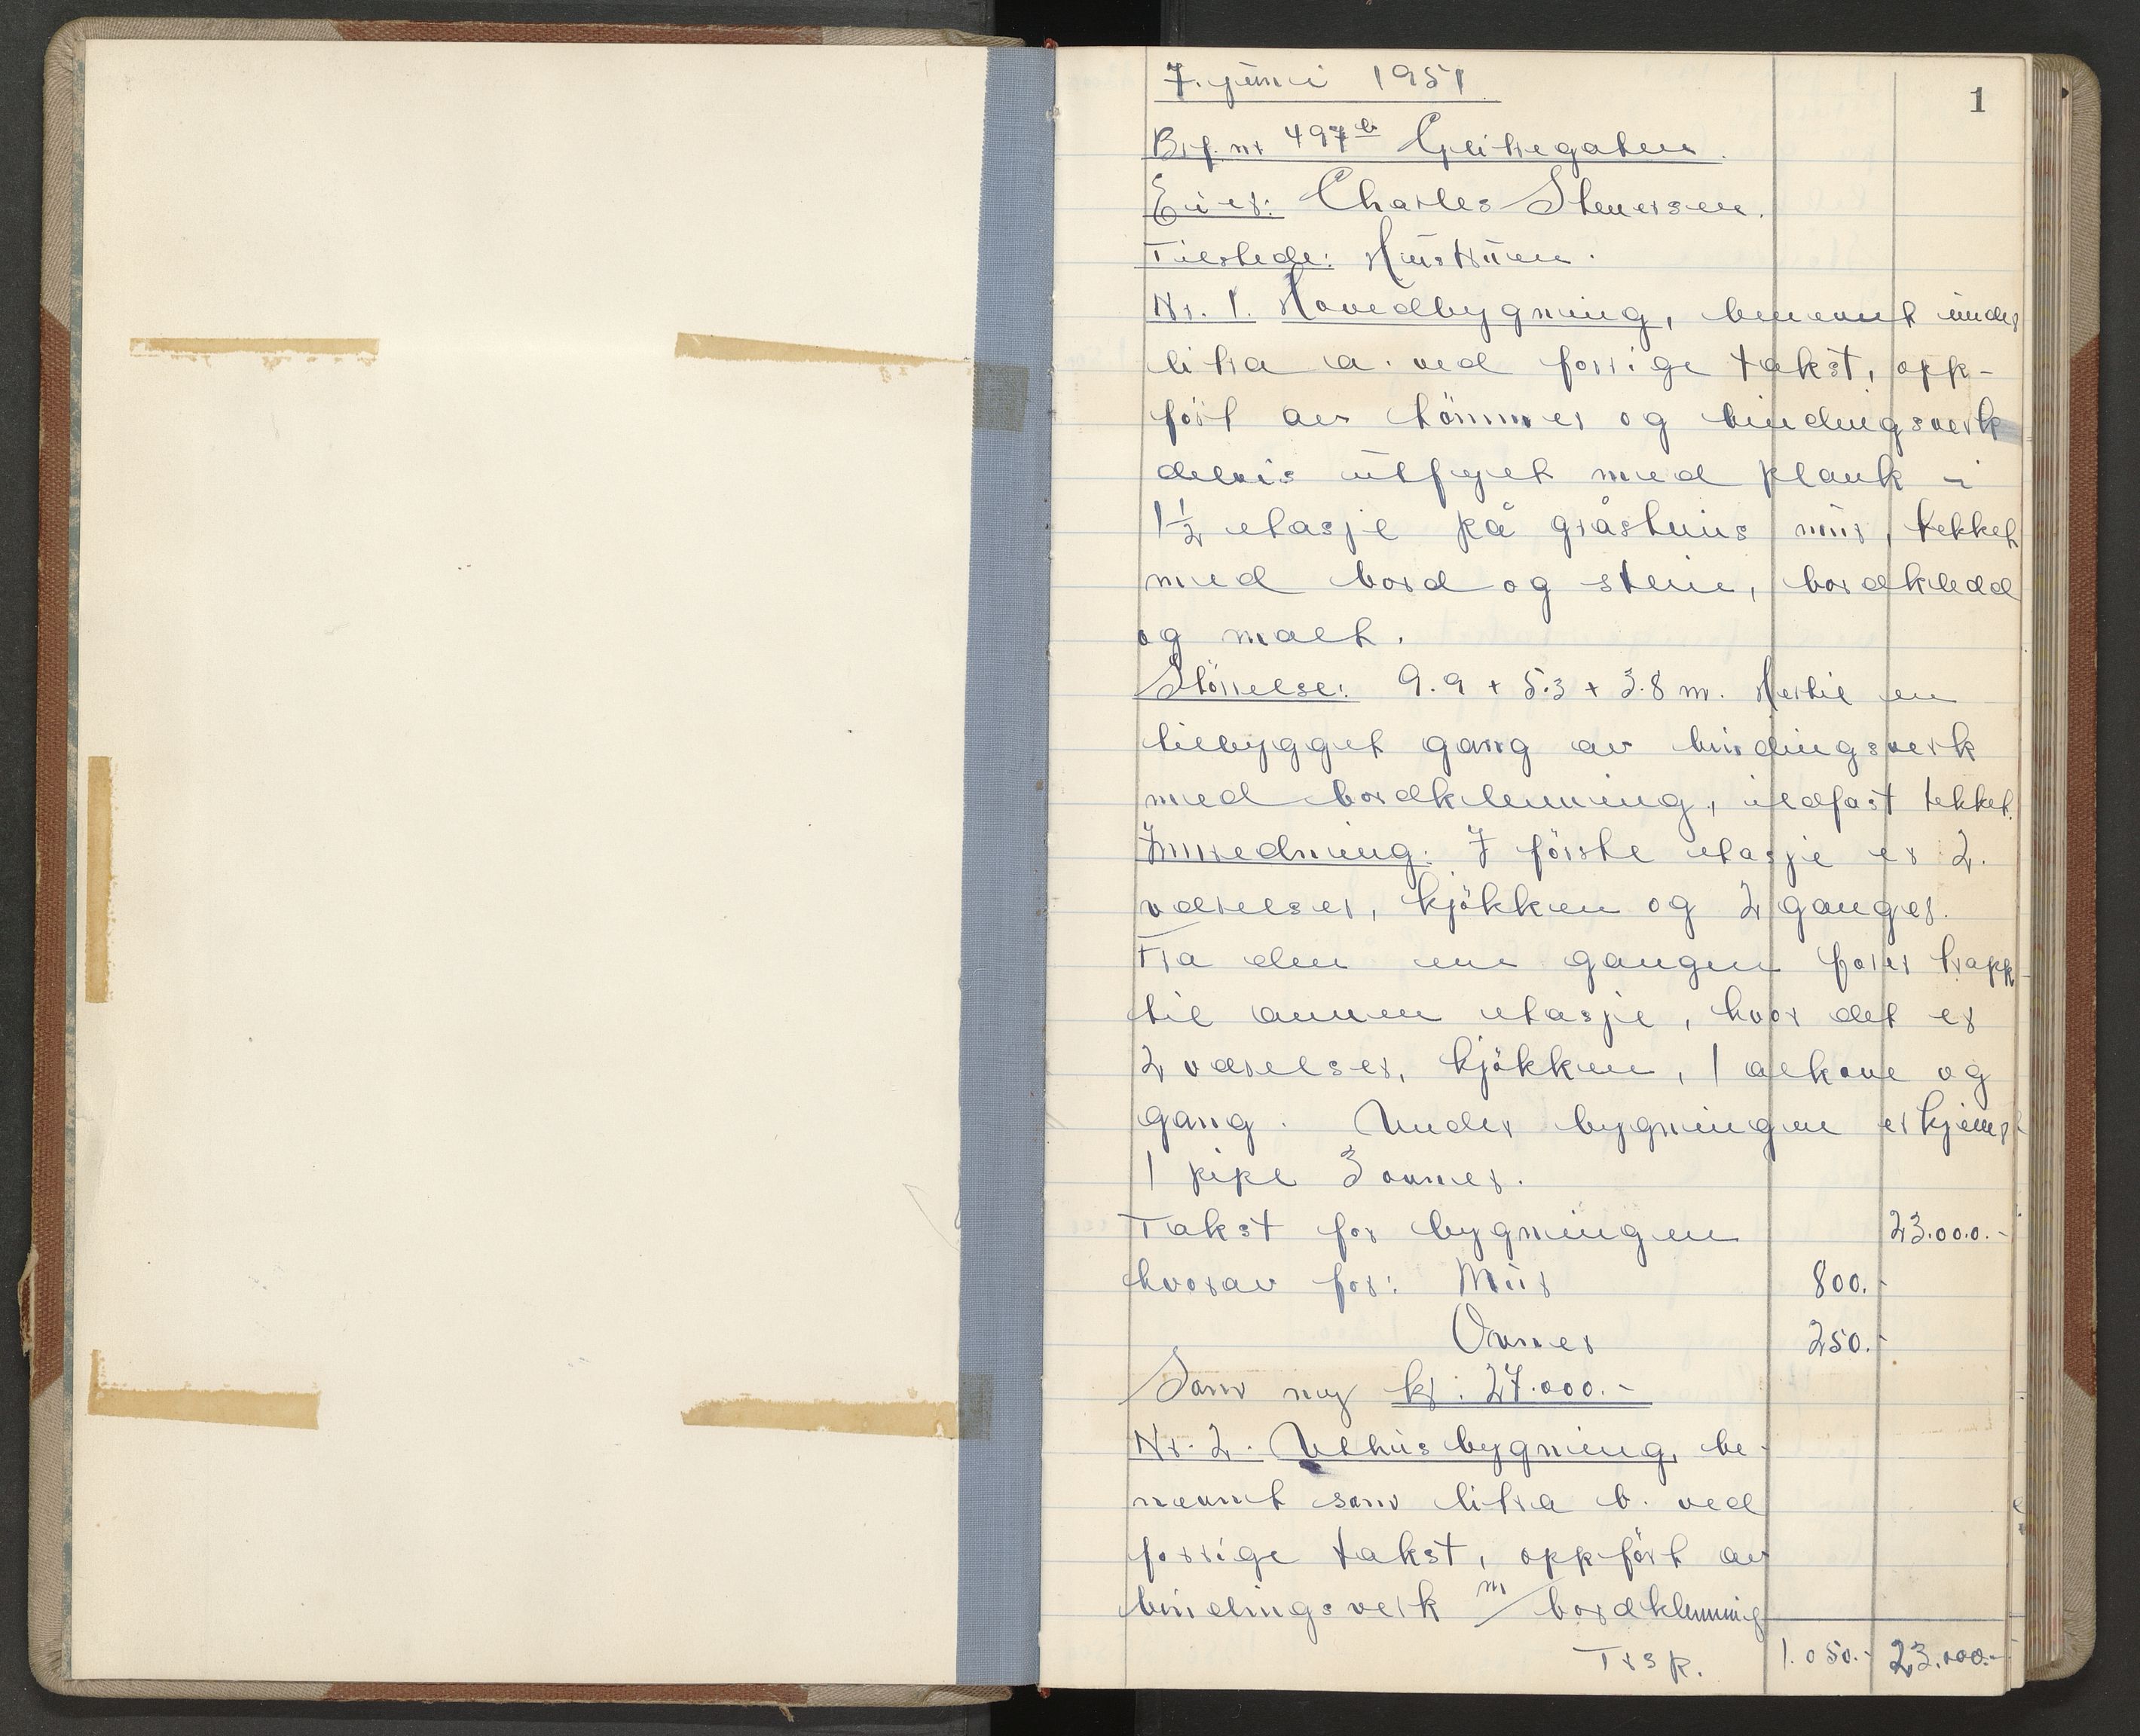 7. juni 1951
1
Brf. nr 497 b
Eier: Charles Stenersen.
Tilstede: Hustruen.
Nr. 1. Hovedbygning, benevnt under
litra a. ved forrige takst, opp-
ført av tömmer og bindingsverk
delvis utfyrt med plank i
1 1/2 etasje på gråsteins mur, tekket
med bord og stein, bordkledd
og malt.
Störrelse: 9.9 + 5.3 + 3.8 m. Hertil en
tilbygget gang av bindingsverk
med bordklenning, vedfast tekket.
Innredning: I förste etasje er 2.
værelser, kjökken og 2 ganger.
Fra den ene gangen förer trapp
til annen etasje, hvor det er
2 værelser, kjökken, 1 alkove og
gang. Under bygningen er kjeller
1 pipe 3 ovner.
Takst for bygningen 23.000.-
hvorav for: Mur 800.-
Ovner 250.-
Som ny kr: 27.000.-
Nr. 2. Uthusbygning, be-
nevnt som litra b. ved
forrige takst, oppfört av
bindingsverk m/bordklenning
Trsp. 1.050.- 23.000.-